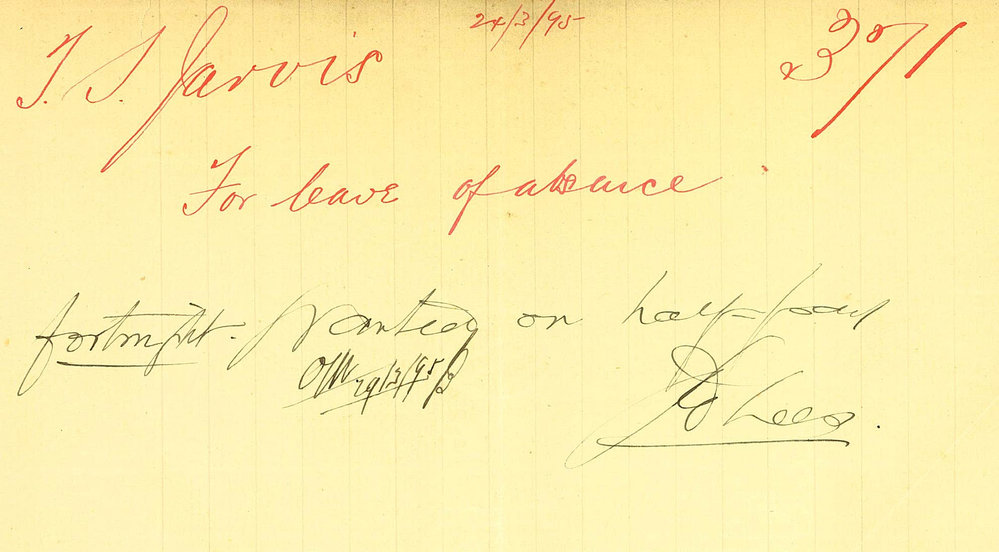 24/3/95
T. S. Jarvis 371
For leave of absence
fortnight. Granted on half-pay
29/3/95
Lees.